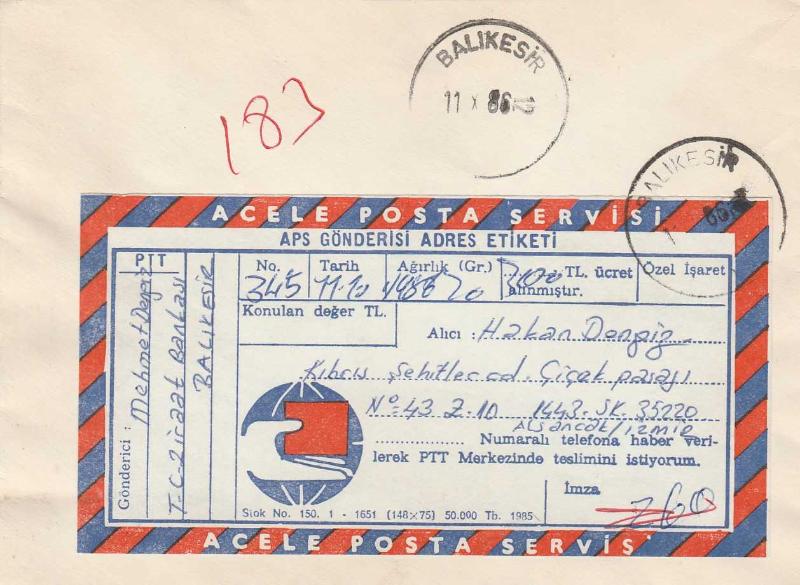 BALIKESİR
11 X 86 12
183
BALIKESİR
86
ACELE POSTA SERVİSİ
APS GÖNDERİSİ ADRES ETİKETİ
PTT
Gönderici :
Mehmet Dengiz
T.C. Ziraat Bankası
BALIKESİR
No. Tarih Ağırlık (Gr.) TL. ücret Özel İşaret
345 11.10.1986 20 alınmıştır.
Konulan değer TL.
Alıcı : Hakan Dengiz
Kıbrıs Şehitler cad. Çiçek pasajı
No:43 Z-10 1443.SK. 35220
Alsancak/İzmir
.................. Numaralı telefona haber veri-
lerek PTT Merkezinde teslimini istiyorum.
İmza
260
Stok No. 150. 1 - 1651 (148×75) 50.000 Tb. 1985
ACELE POSTA SERVİS